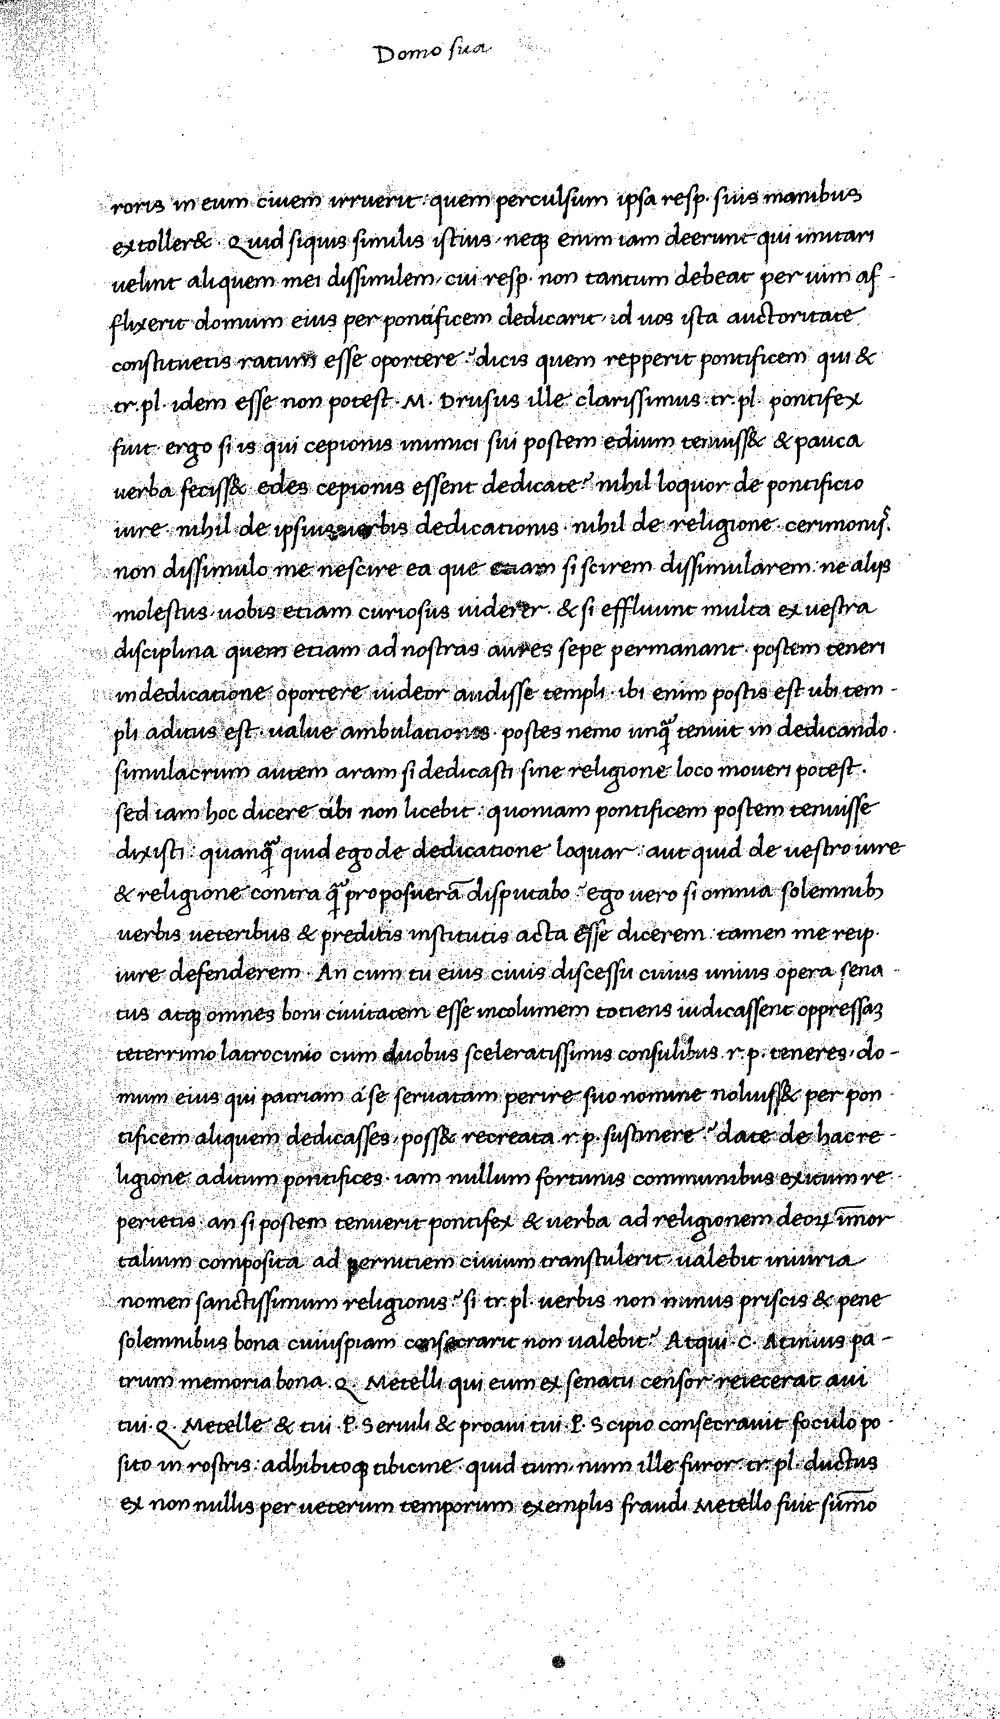 Domo sua
roris in eum ciuem irruerit : quem perculsum ipsa resp. suis manibus
extoller& . Quid siquis similis istius . neq; enim iam deerunt qui imitari
uelint aliquem mei dissimilem, cui resp. non tantum debeat per uim af-
flixerit domum eius per pontificem dedicarit, id uos ista auctoritate
constituetis ratum esse oportere? dicis quem repperit pontificem qui &
tr. pl. idem esse non potest . M. Drusus ille clarissimus tr. pl. pontifex
fuit. ergo si is qui cepionis inimici sui postem edium tenuiss& & pauca
uerba feciss& edes cepionis essent dedicate? nihil loquor de pontificio
iure . nihil de ipsius uerbis dedicationis . nihil de religione . cerimoniis.
non dissimulo me nescire ea que etiam si scirem dissimularem : ne aliis
molestus, uobis etiam curiosus uiderer . & si effluunt multa ex uestra
disciplina quem etiam ad nostras aures sepe permanant . postem teneri
in dedicatione oportere uideor audisse templi . ibi enim postis est ubi tem-
pli aditus est . ualue ambulationis . postes nemo unq̃ tenuit in dedicando.
simulacrum autem aram si dedicasti sine religione loco moueri potest.
sed iam hoc dicere tibi non licebit : quoniam pontificem postem tenuisse
dixisti . quanq̃ quid ego de dedicatione loquar : aut quid de uestro iure
& religione contra q̃ proposuerā disputabo? ego uero si omnia solemnib;
uerbis ueteribus & preditis institutis acta esse dicerem : tamen me reip.
iure defenderem . An cum tu eius ciuis discessu cuius unius opera sena-
tus atq; omnes boni ciuitatem esse incolumem totiens iudicassent oppressaʒ
teterrimo latrocinio cum duobus sceleratissimis consulibus r. p. teneres, do-
mum eius qui patriam á se seruatam perire suo nomine noluiss& per pon-
tificem aliquem dedicasses, poss& recreata r. p. sustinere? date de hac re-
ligione aditum pontifices . iam nullum fortunis communibus exitum re-
perietis . an si postem tenuerit pontifex & uerba ad religionem deoꝝ im̄or
talium composita ad pernitiem ciuium transtulerit, ualebit iniuria
nomen sanctissimum religionis? si tr. pl. uerbis non minus priscis & pene
solemnibus bona cuiuspiam consecrarit non ualebit? Atqui . C. Atinius pa-
trum memoria bona . Q. Metelli qui eum ex senatu censor reiecerat aui
tui . Q. Metelle & tui . P. Seruili & proaui tui . P. Scipio consecrauit foculo po-
sito in rostris : adhibitoq; tibicine . quid tum, num ille furor tr. pl. ductus
ex non nullis per ueterum temporum exemplis fraudi Metello fuit sum̄o